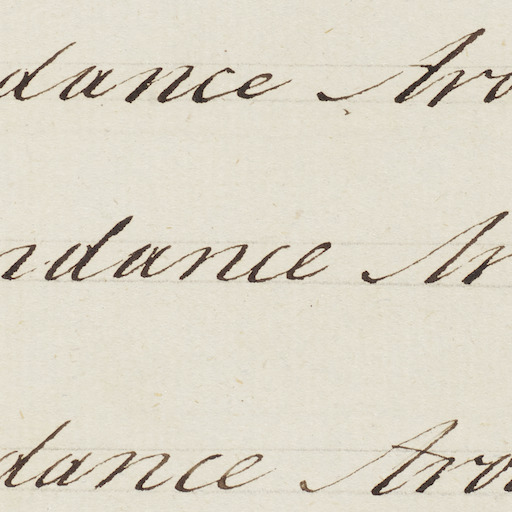 dance Aro
ndance Ar
dance Aro